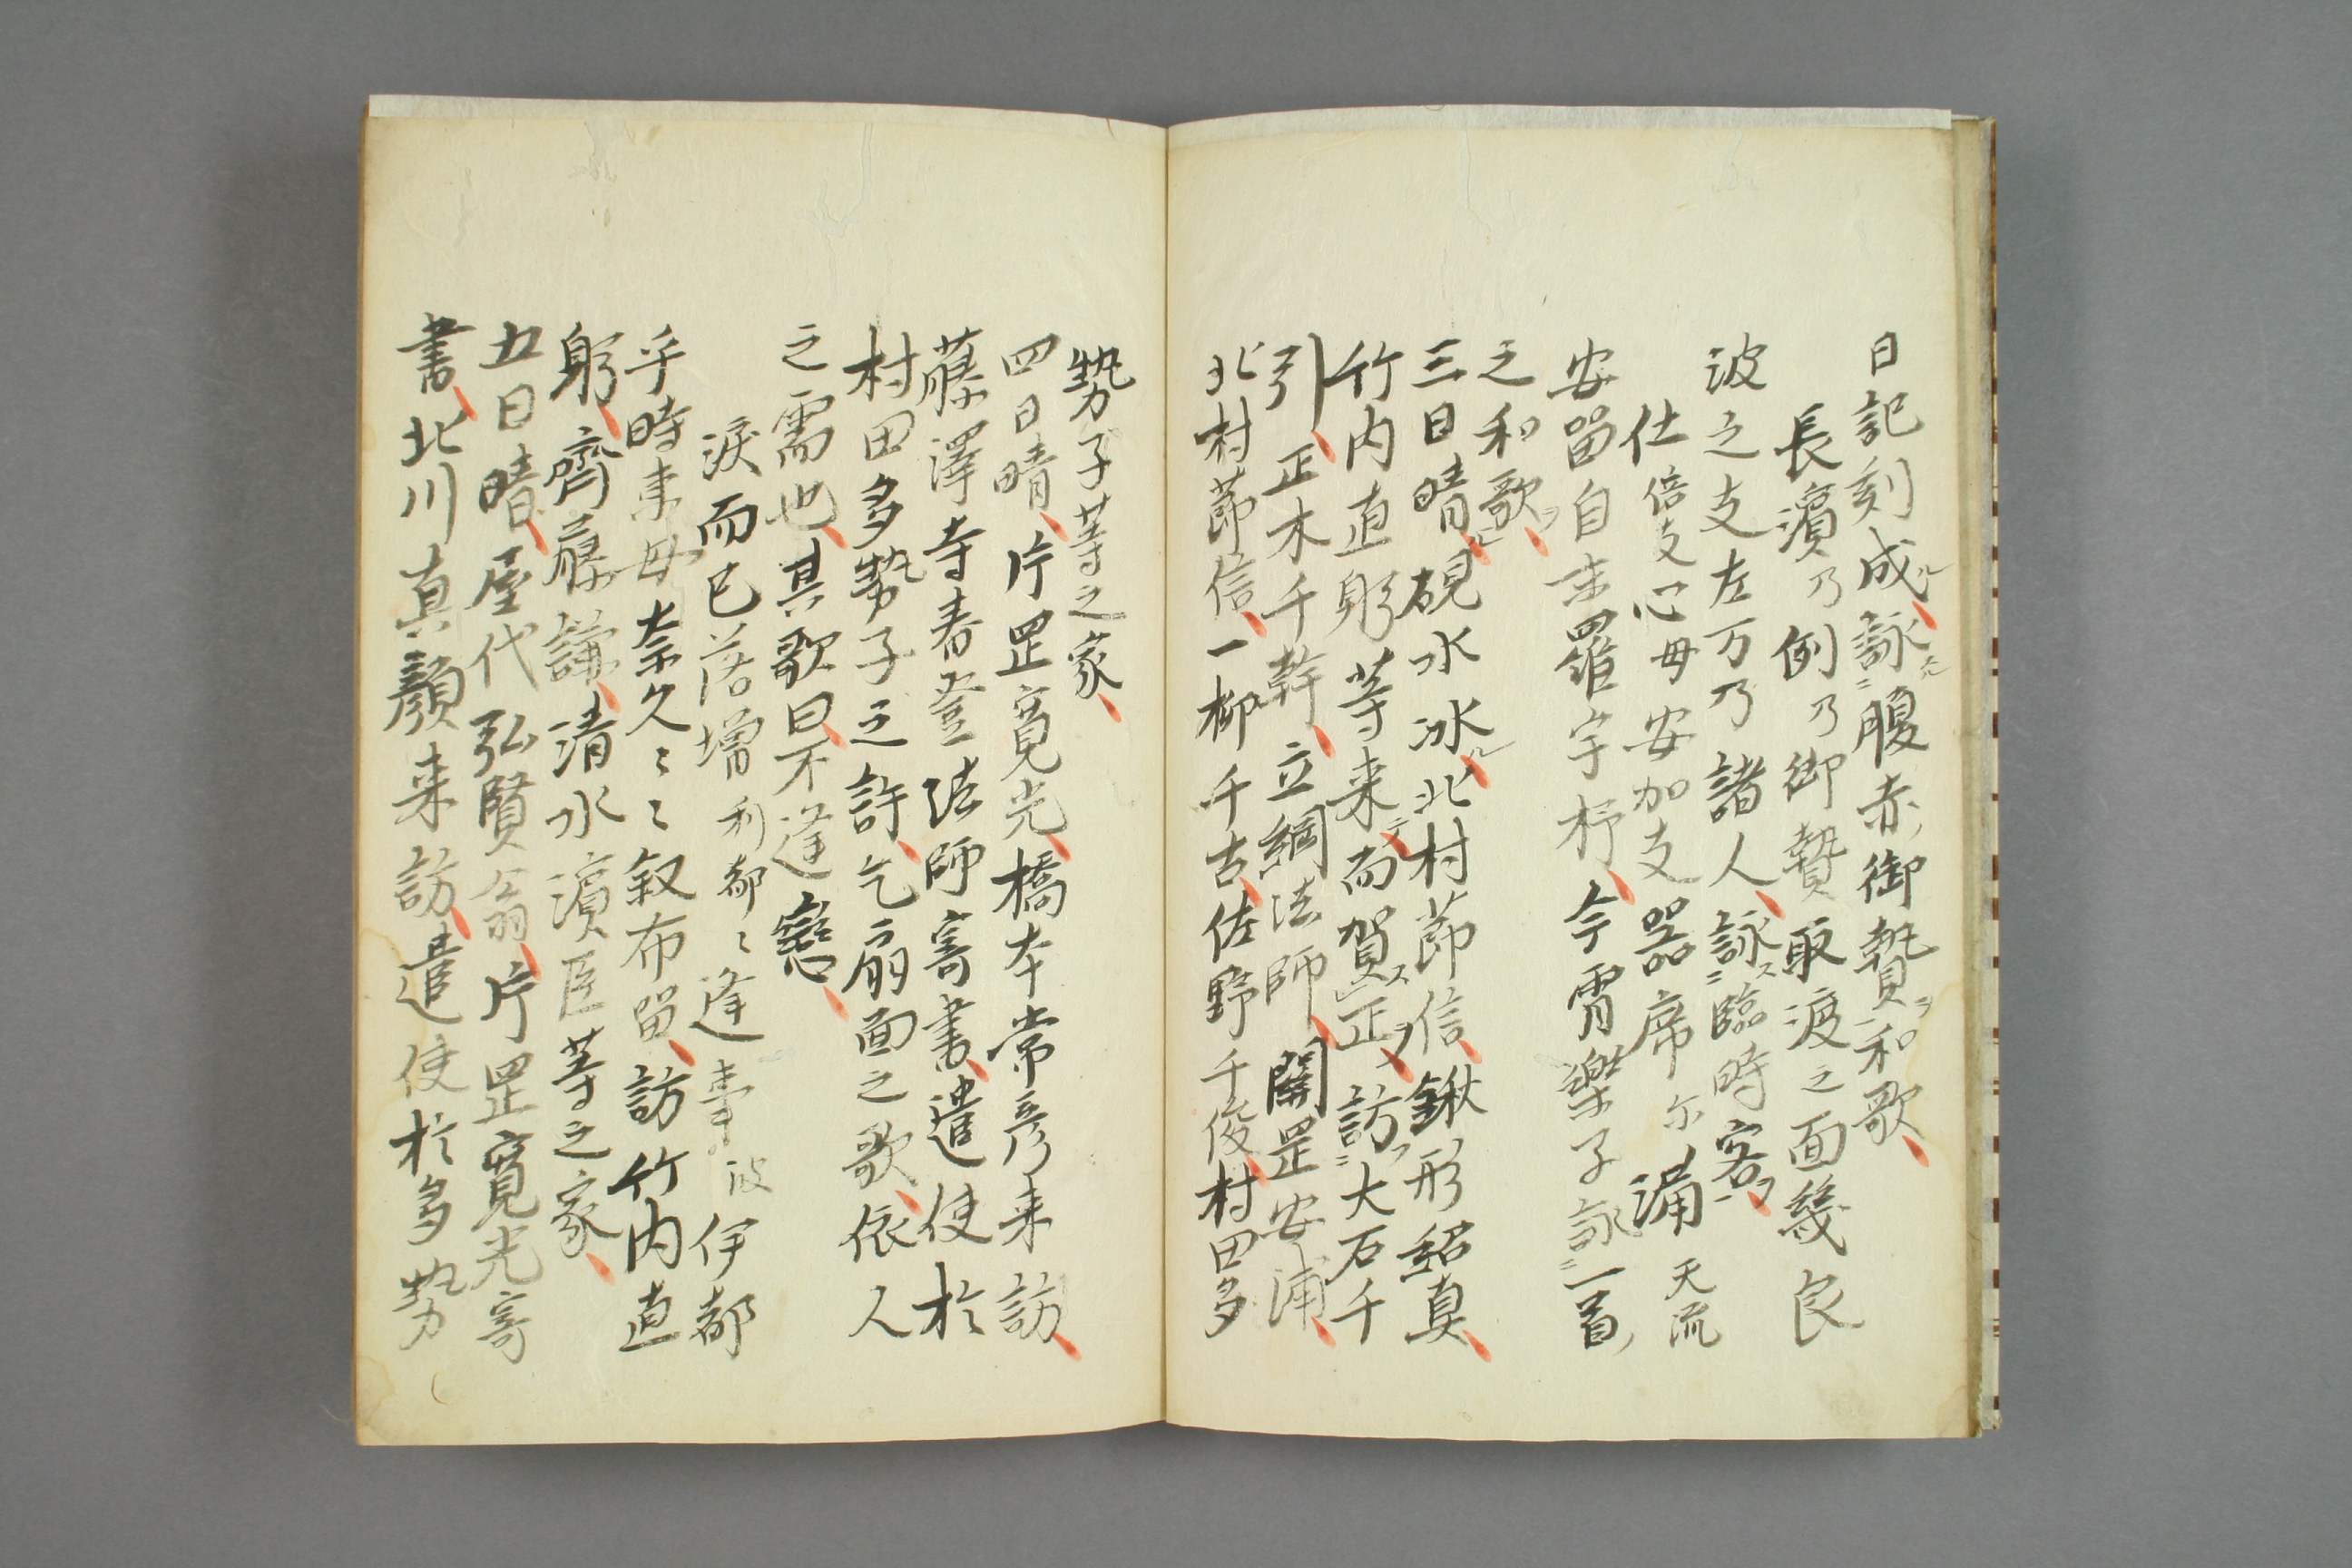 日記刻成、詠腹赤御贄和歌、
長濱乃例乃御贄取渡之面幾良
波之支左万乃諸人、詠臨時客、
仕倍支心毋安加支器席尓満天流
安留自末羅宇杼、今宵樂子詠一首
之和歌、
三日晴、硯水冰、北村節信、鍬形紹真、
竹内直躬等来而賀正、訪大石千
引、正木千幹、立綱法師、關罡安浦、
北村節信、一柳千古、佐野千俊、村田多
勢子等之家、
四日晴、片罡寛光、橋本常彦来訪、
藤澤寺春登法師寄書、遣使於
村田多勢子之許、乞扇面之歌、依人
之需也、其歌曰、不逢戀、
涙而已落増利都々逢事波伊都
乎時来毋奈久々々叙布留、訪竹内直
躬、齊藤謙、清水濱臣等之家、
五日晴、屋代弘賢翁、片罡寛光寄
書、北川真顔来訪、遣使於多勢